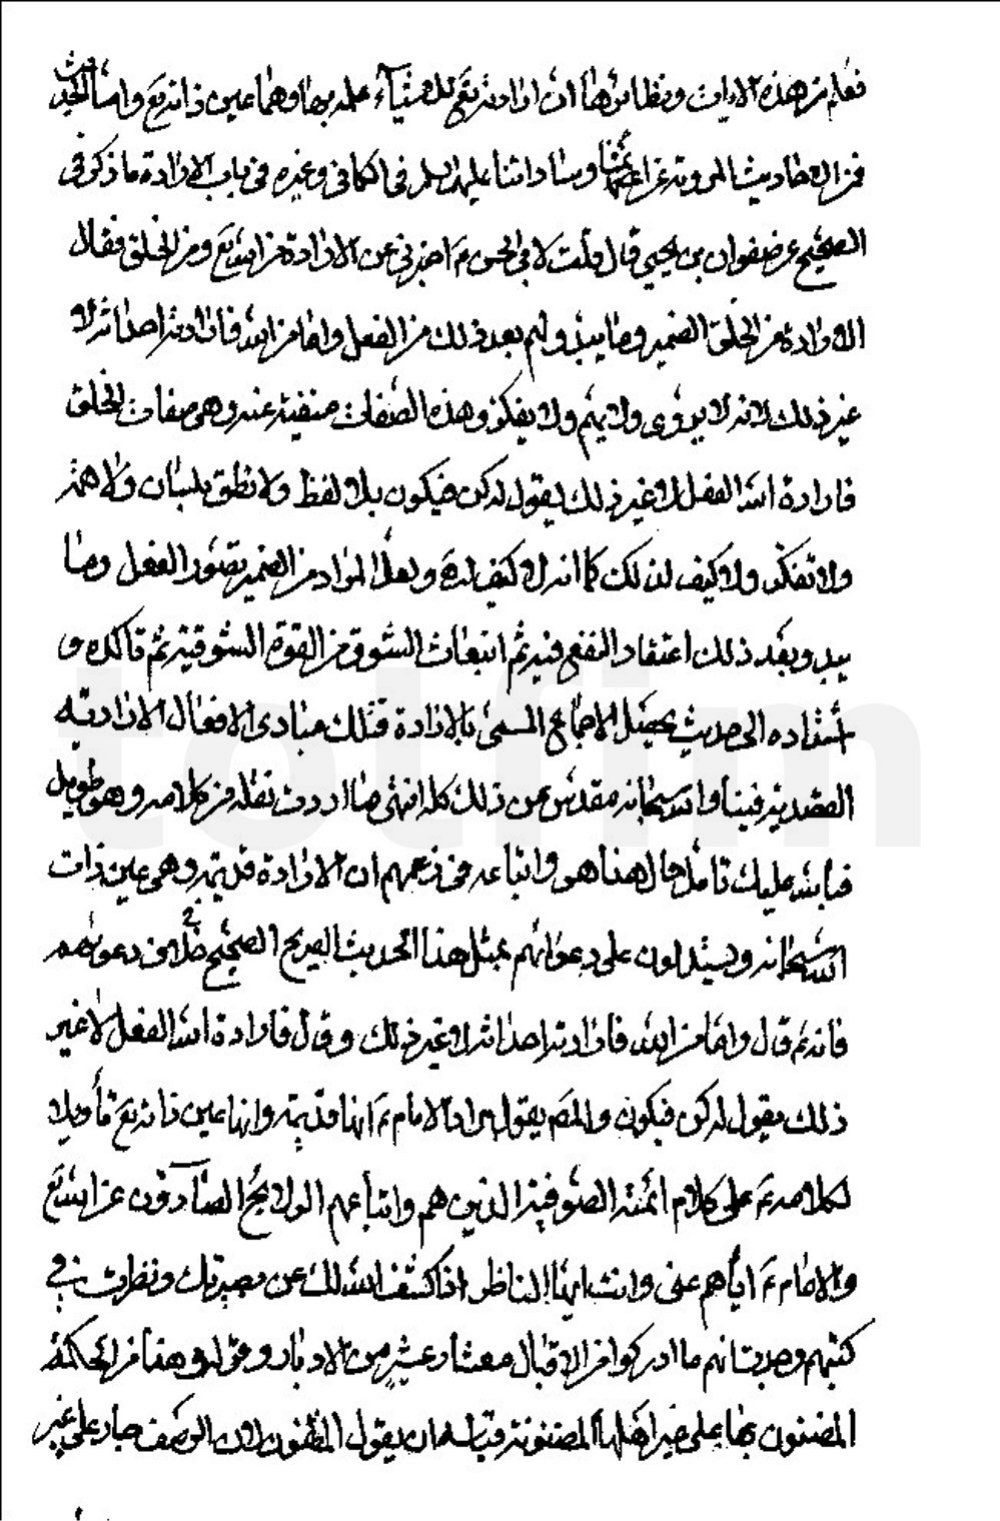 فعلم من هذه الايات ونظائرها ان ارادته تع للاشياء علمه بها وهما عين ذاته تع واما الحديث
فمن الاحاديث المروية عن ائمتنا وساداتنا عليهم السلم في الكافي وغيره في باب الارادة ما ذكر في
الصحيح عن صفوان بن يحيى قال قلت لابي الحسن ع اخبرني عن الارادة من الله تع ومن الخلق فقال
الارادة من الخلق الضمير وما يبدو لهم بعد ذلك من الفعل واما من الله فارادته احداثه لا
غير ذلك لانه لا يروى ولا يهم ولا يفكر وهذه الصفات منفية عنه وهي صفات الخلق
فارادة الله الفعل لا غير ذلك يقول له كن فيكون بلا لفظ ولا نطق بلسان ولا همة
ولا تفكر ولا كيف لذلك كما انه لا كيف له ولعل المراد من الضمير تصور الفعل وما
يبدو بعد ذلك اعتقاد النفع فيه ثم انبعاث الشوق من القوة الشوقية ثم تاكده و
اشتداده الى حيث يحصل الاجماع المسمى بالارادة فتلك مبادى الافعال الارادية
القصدية فينا والله سبحانه مقدس عن ذلك كله انتهى ما اردت نقله من كلامه وهو طويل
فبالله عليك تامل حال هذا هو واتباعه في زعمهم ان الارادة قديمة وهي عين ذات
الله سبحانه ويستدلون على دعواهم بمثل هذا الحديث الصريح الصحيح في خلاف دعواهم
فانه ع قال واما من الله فارادته احداثه لا غير ذلك وقال فارادة الله الفعل لا غير
ذلك يقول له كن فيكون والمص يقول مراد الامام ع انها قديمة وانها عين ذاته تع تأويلا
لكلامه ع على كلام ائمته الصوفية الذين هم واتباعهم الولايج الصادون عن الله تع
والامام ع اياهم عنى وانت ايها الناظر اذا كشف الله لك عن بصيرتك ونظرت في
كتبهم وجدت انهم ما ادركوا من الاقبال معشار عشر من الادبار وقوله وهذا من الحكمة
المضنون بها على غير اهلها المضنونة قباله ان يقول المظنون لان الوصف جار على غير